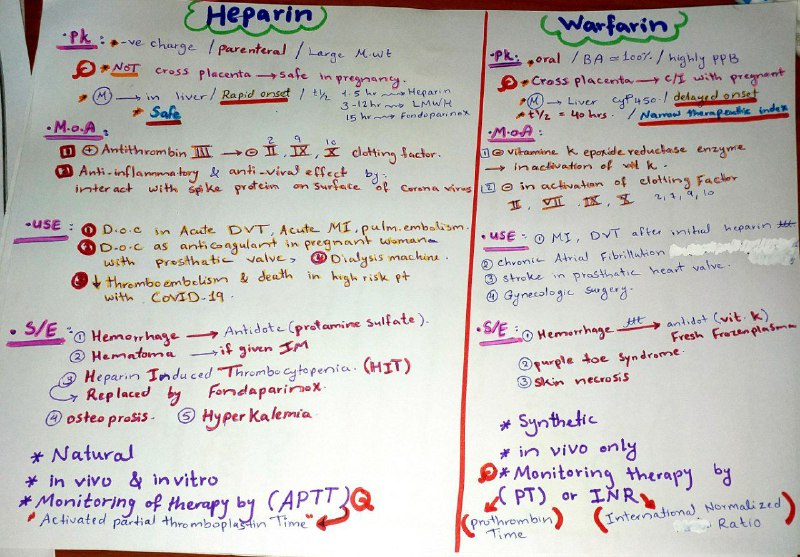 Heparin
• PK : * -ve charge / parenteral / Large M.wt
* NOT cross placenta → safe in pregnancy.
* (M) → in liver / Rapid onset / t½ 1.5 hr → Heparin
3-12hr → LMWH
15 hr → Fondoparinox
* Safe
• M.o.A
1 ⊕ Antithrombin III → ⊖ II, IX, X clotting factor.
2 9 10
2 Anti-inflammatory & anti-viral effect by:
interact with spike protein on surface of corona virus
• USE : 1 D.o.c in Acute DVT, Acute MI, pulm.embolism.
2 D.o.c as anticoagulant in pregnant woman
with prosthatic valve, Dialysis machine.
↓ thromboembolism & death in high risk pt
with CoVID-19.
• S/E : ① Hemorrhage → Antidote (protamine sulfate).
② Hematoma → if given IM
③ Heparin Induced Thrombocytopenia. (HIT)
Replaced by Fondaparinox.
④ osteoprosis. ⑤ HyperKalemia
* Natural
* in vivo & invitro
* Monitoring of therapy by (APTT) Q
"Activated partial thromboplastin Time"
Warfarin
• PK : * oral / BA ≈ 100% / highly PPB
* Cross placenta → C/I with pregnant
* (M) → Liver CYP450 / delayed onset
* t½ = 40 hrs. / Narrow therapeutic index
• M.o.A :
1 ⊖ vitamine K epoxide reductase enzyme
→ in activation of vit K.
2 ⊖ in activation of clotting Factor
II, VII, IX, X 2, 7, 9, 10
• USE : ① MI, DVT after initial heparin
② chronic Atrial Fibrillation
③ stroke in prosthatic heart valve.
④ Gynecologic surgery.
• S/E : ① Hemorrhage → antidot (vit. K)
Fresh Frozenplasma
② purple toe syndrome.
③ skin necrosis
* Synthetic
* in vivo only
* Monitoring therapy by
(PT) or INR
(prothrombin Time)
(International Normalized Ratio)